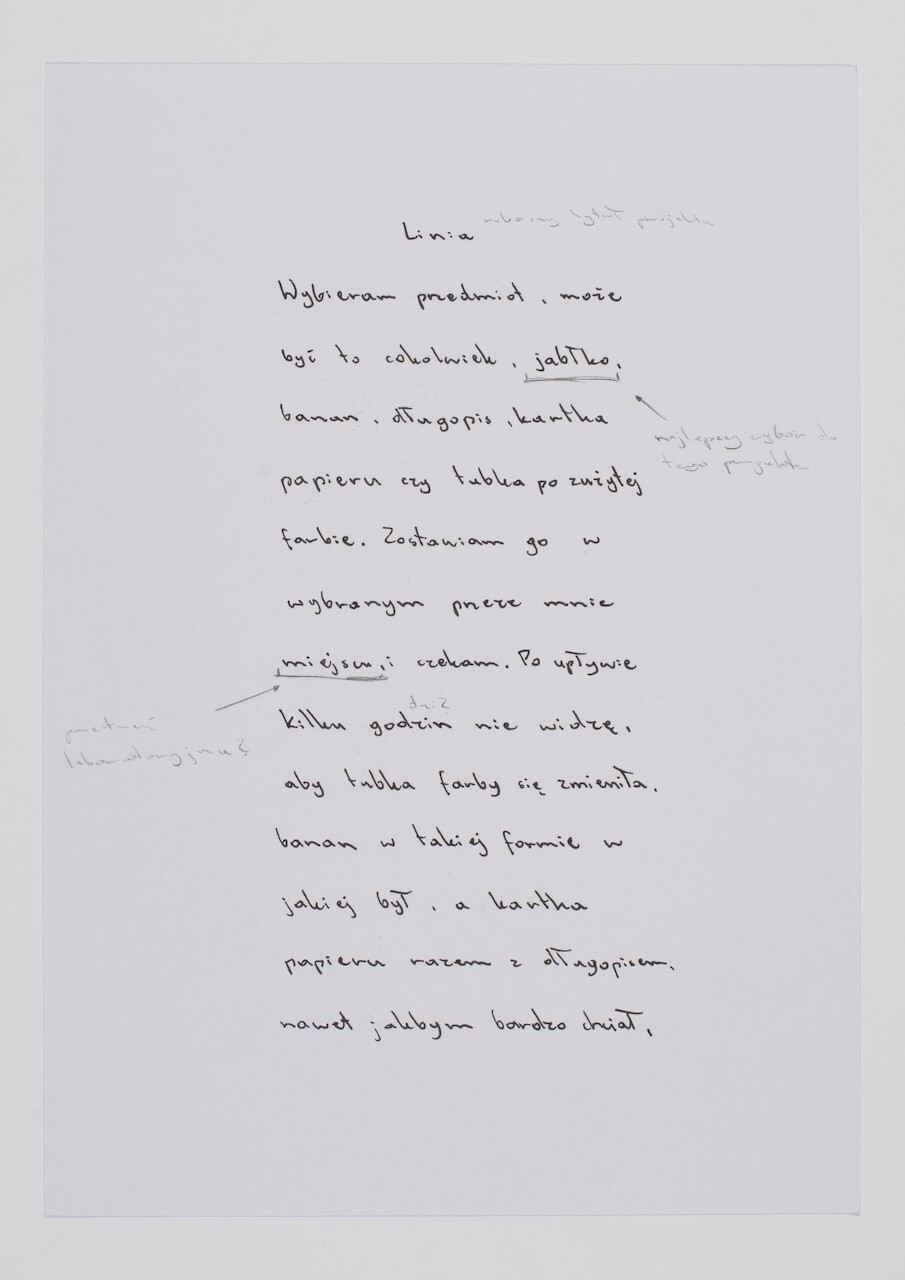 Linia
roboczy tytuł projektu
Wybieram przedmiot, może
być to cokolwiek, jabłko,
najlepszy wybór do
tego projektu
banan, długopis, kartka
papieru czy tubka po zużytej
farbie. Zostawiam go w
wybranym przeze mnie
miejscu, i czekam. Po upływie
przestrzeń
laboratoryjna?
dni?
kilku godzin nie widzę,
aby tubka farby się zmieniła,
banan w takiej formie w
jakiej był, a kartka
papieru razem z długopisem,
nawet jakbym bardzo chciał,